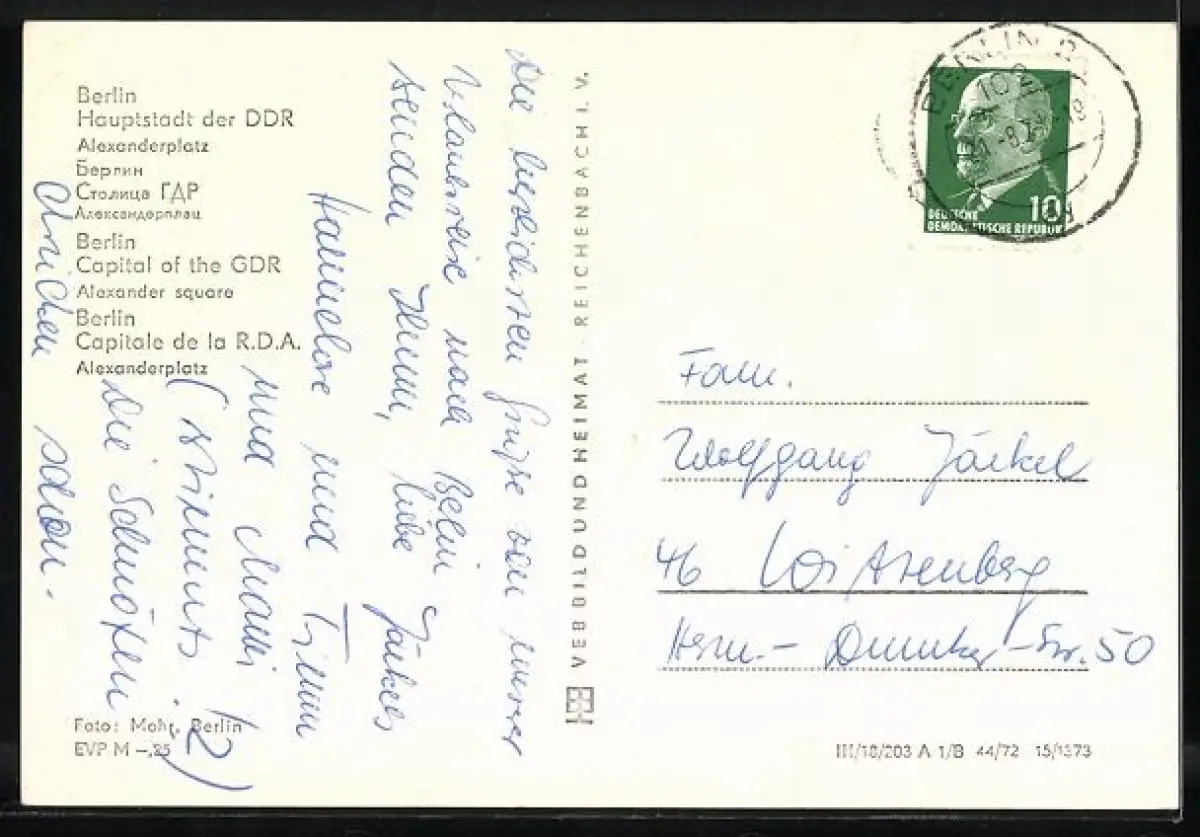 Berlin
Hauptstadt der DDR
Alexanderplatz
Берлин
Столица ГДР
Александерплац
Berlin
Capital of the GDR
Alexander square
Berlin
Capitale de la R.D.A.
Alexanderplatz
Foto: Mohr, Berlin
EVP M –,25
Die herzlichsten Grüße von unserer
Urlaubsreise nach Berlin
senden Ihnen, liebe Jäckels
Hannelore und
und
(stimmts!?)
Die
schon.
VEB BILD UND HEIMAT · REICHENBACH I. V.
BERLIN 2
102
DEUTSCHE
DEMOKRATISCHE REPUBLIK
10
Fam.
Wolfgang Jäckel
46 Wittenberg
Herm.- Duncker-Str. 50
III/18/203 A 1/B 44/72 15/1373